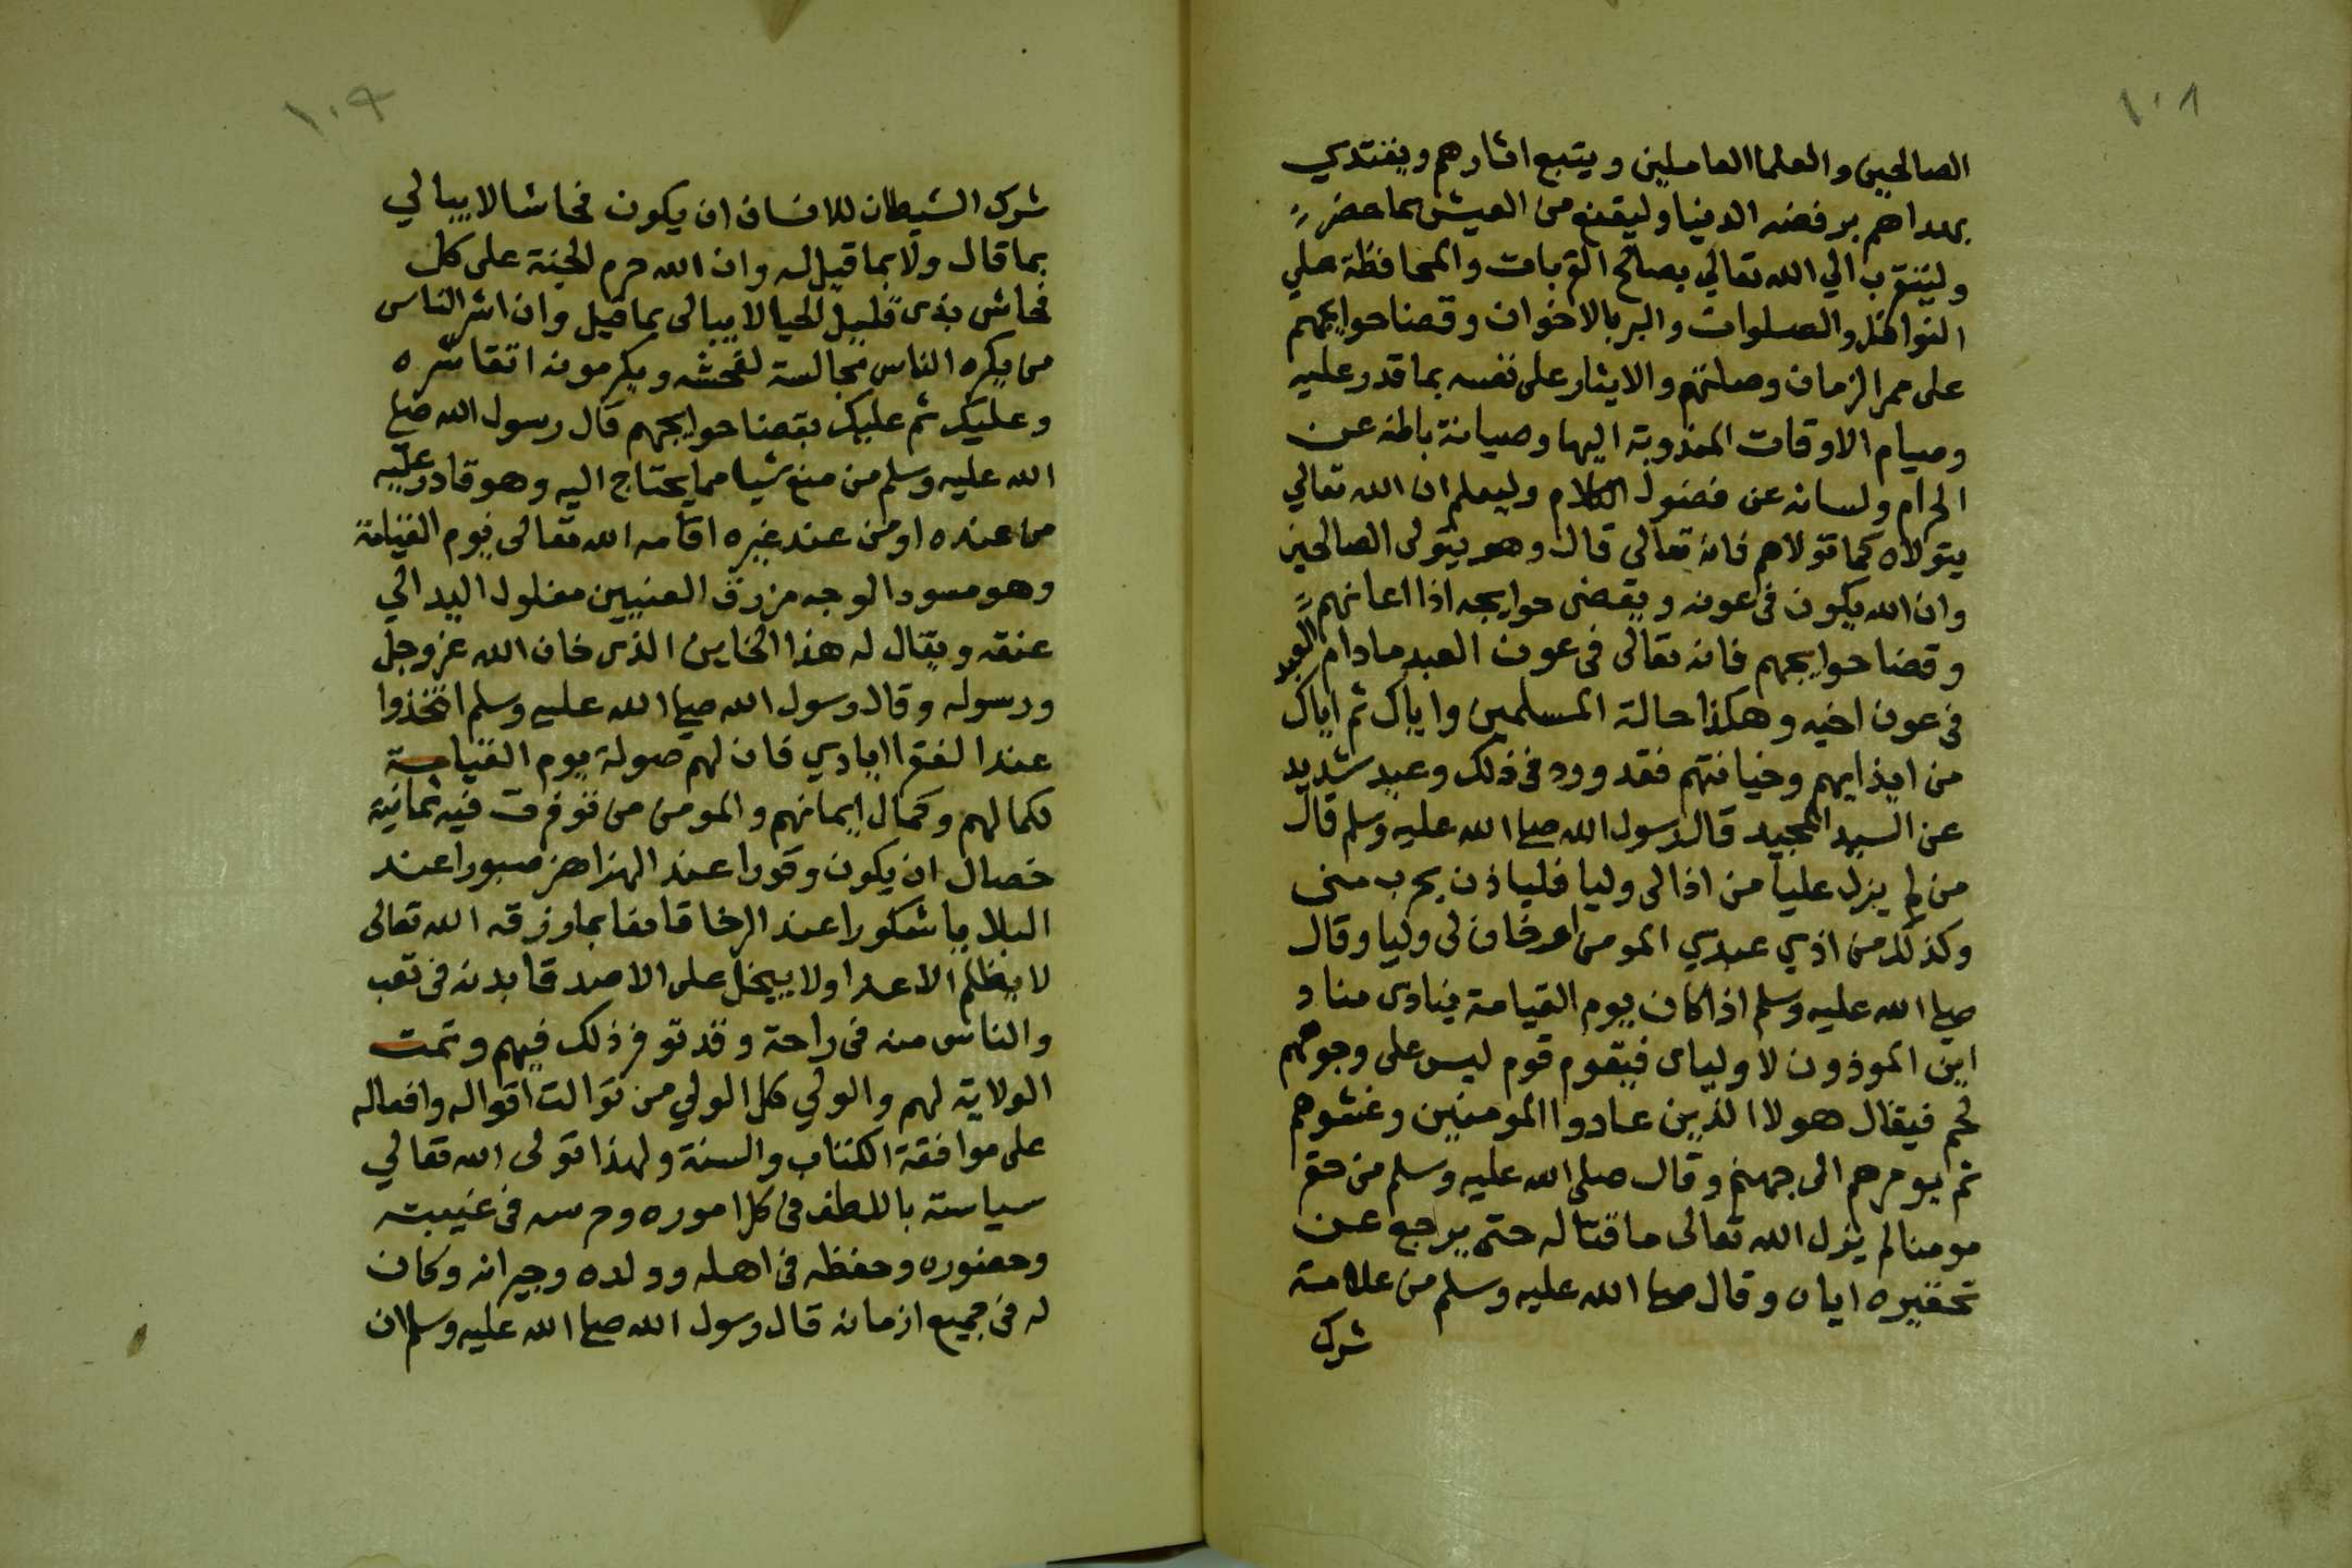 ١٠٨
الصالحين والعلما العاملين ويتبع اثارهم ويقتدي
بهداهم برفضه الدنيا وليقنع من العيش بما حضر
وليتقرب الي الله تعالي بصالح القربات والمحافظة علي
النوافل والصلوات والبر بالاخوان وقضا حوايجهم
على ممر الزمان وصلتهم والايثار على نفسه بما قدر عليه
وصيام الاوقات المندوبة اليها وصيانة باطنه عن
الحرام ولسانه عن فضول الكلام وليعلم ان الله تعالي
يتولاه كما تولاهم فانه تعالى قال وهو يتولى الصالحين
وان الله يكون في عونه ويقضى حوايجه اذا اعانهم
وقضا حوايجهم فانه تعالى في عون العبد مادام العبد
في عون اخيه وهكذا حالة المسلمين واياك ثم اياك
من ايذايهم وخيانتهم فقد ورد في ذلك وعيد شديد
عن السيد المجيد قال رسول الله صلي الله عليه وسلم قال
من لم يزل عليا من اذا لى وليا فلياذن بحرب منى
وكذلك من اذي عبدي المومن او خان لى وليا وقال
صلي الله عليه وسلم اذا كان يوم القيامة ينادى مناد
اين الموذون لاولياى فيقوم قوم ليس على وجوههم
لحم فيقال هولا الذين عادوا المومنين وغشوهم
ثم يومرهم الى جهنم وقال صلى الله عليه وسلم من حقر
مومنا لم يزل الله تعالى ماقتا له حتى يرجع عن
تحقيره اياه وقال صلي الله عليه وسلم من علامة
شرك
١٠٩
شرك الشيطان للانسان ان يكون فحاشا لا يبالي
بما قال ولا بما قيل له وان الله حرم الجنة على كل
فحاش بذى قليل الحيا لا يبالى بما قيل وان اشر الناس
من يكره الناس مجالسة لفحشه ويكرمونه اتقا شره
وعليك ثم عليك بقضا حوايجهم قال رسول الله صلي
الله عليه وسلم من منع شيا مما يحتاج اليه وهو قادر عليه
من عنده او من عند غيره اقامه الله تعالى يوم القيامة
وهو مسود الوجه مزرق العنيين مغلول اليد الي
عنقه ويقال له هذا الخاين الذى خان الله عز وجل
ورسوله وقال رسول الله صلي الله عليه وسلم اتخذوا
عند الفقرا ايادي فان لهم صولة يوم القيامة
لكمالهم وكمال ايمانهم والمومن من توفرت فيه ثمانية
خصال ان يكون وقورا عند الهزاهز صبورا عند
البلايا شكورا عند الرخا قانعا بما رزقه الله تعالى
لا يظلم الاعدا ولا يبخل على الاصدقا بدنه في تعب
والناس منه في راحة وقد توفر ذلك فيهم وتمت
الولاية لهم والولي كل الولي من توالت اقواله وافعاله
على موافقة الكتاب والسنة ولهذا تولى الله تعالي
سياسته باللطف في كل اموره وحرسه في غيبته
وحضوره وحفظه في اهله وولده وجيرانه وكان
له في جميع ازمانه قال رسول الله صلي الله عليه وسلم ان